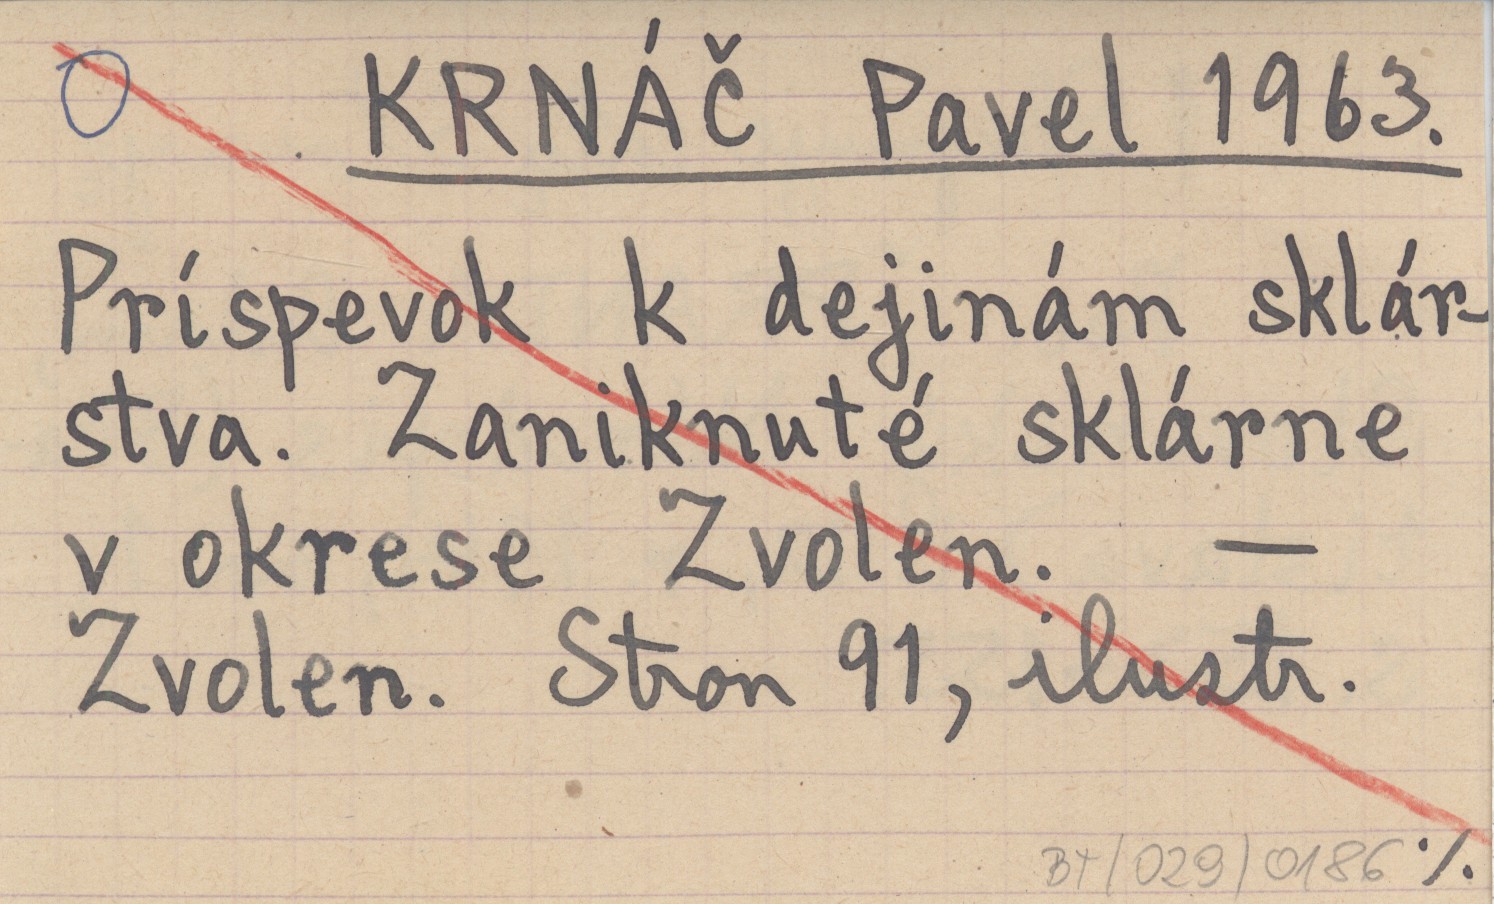 O KRNÁČ Pavel 1963.
Príspevok k dejinám sklár-
stva. Zaniknuté sklárne
v okrese Zvolen. —
Zvolen. Stron 91, ilustr.
BT/029/0186 ·/.